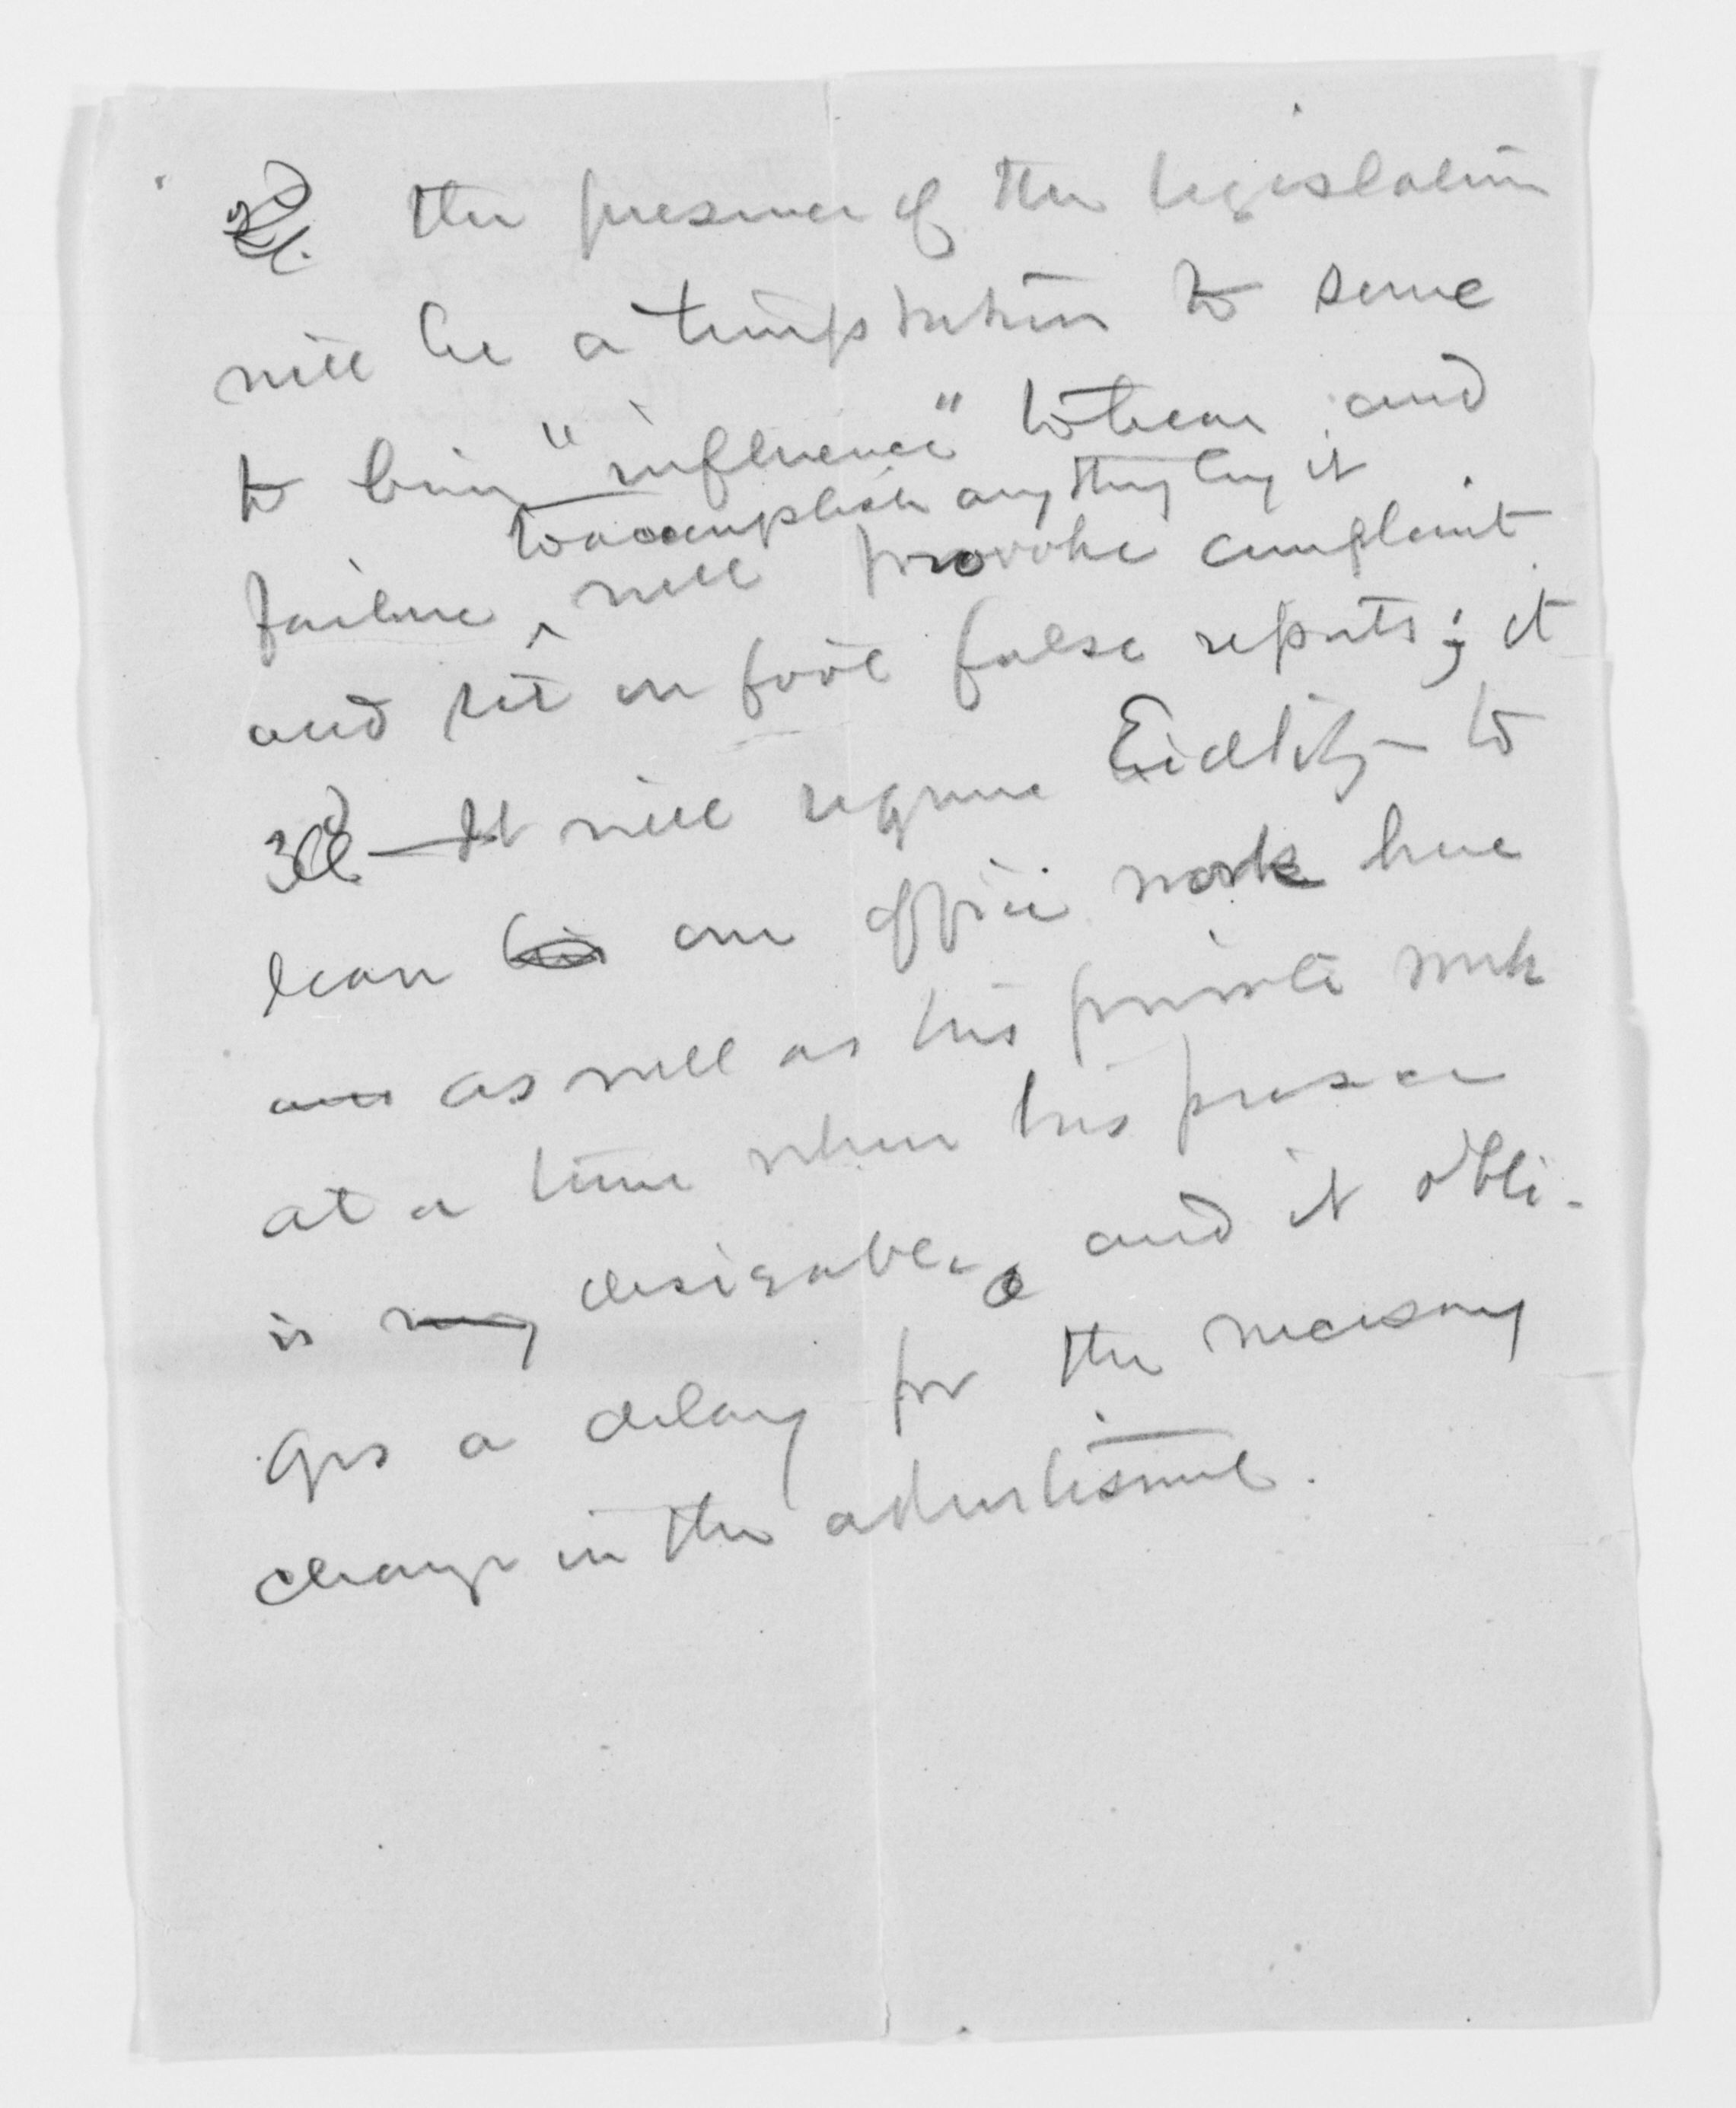 2d the presence of the legislature
will be a temptation to some
to bring "influence" to bear and
to accomplish any thing by it
failure ^ will provoke complaint
and set on foot false reports; it
3d — It will require Eidlitz to
leave his our office work here
as well as his private work
at a time when his presence
is very desirable, and it obli-
ges a delay for the necessary
change in the advertisement.